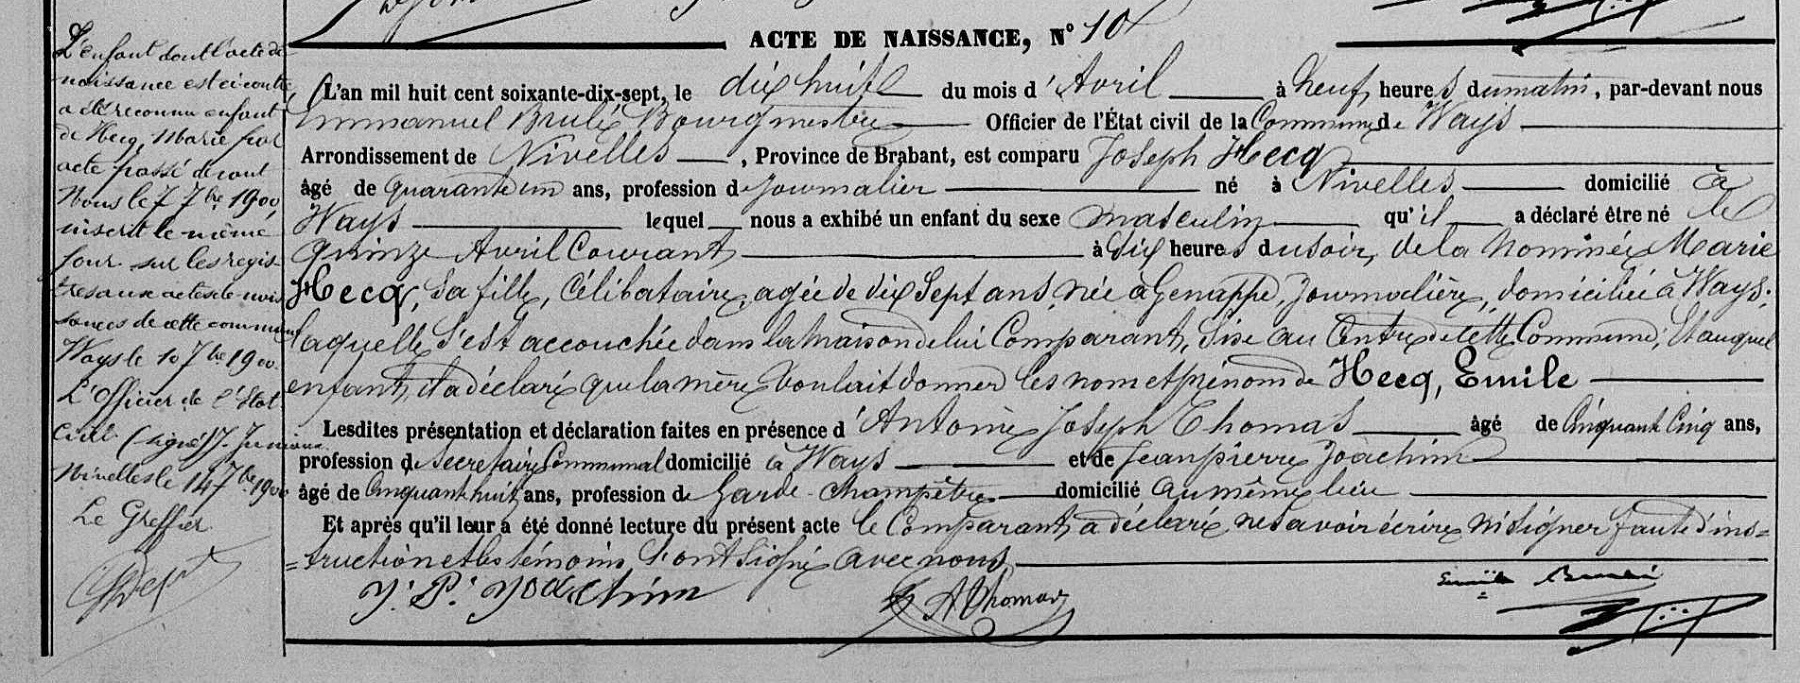 L'enfant dont l'acte de
naissance est ci contre
a été reconnu enfant
de Hecq, Marie par
acte passé devant
Nous le 7 7bre 1900,
inscrit le même
jour sur les regis
tres aux actes de nais
sances de cette commune
Ways le 10 7bre 1900.
L'Officier de l'état
Civil (signé) J.
Nivelles le 14 7bre 1900
Le Greffier
ACTE DE NAISSANCE, N° 10
L'an mil huit cent soixante-dix-sept, le dix huit du mois d'Avril à neuf heures du matin, par-devant nous
Emmanuel Brulé, Bourgmestre Officier de l'État civil de la Commune de Ways
Arrondissement de Nivelles, Province de Brabant, est comparu Joseph Hecq
âgé de quarante un ans, profession d journalier né à Nivelles domicilié à
Ways lequel nous a exhibé un enfant du sexe masculin qu'il a déclaré être né le
quinze Avril Courant à dix heures du soir, de la nommée Marie
Hecq, sa fille, Célibataire, agée de dix sept ans, née à Genappe, Journalière, domiciliée à Ways,
laquelle s'est accouchée dans la maison de lui Comparant, sise au Centre de cette Commune, et auquel
enfant il a déclaré que la mère voulait donner les nom et prénom de Hecq, Emile
Lesdites présentation et déclaration faites en présence d'Antoine Joseph Thomas âgé de Cinquante Cinq ans,
profession de Secretaire Communal domicilié à Ways et de Jean pierre Joachim
âgé de Cinquante huit ans, profession de Garde-Champêtre domicilié au même lieu
Et après qu'il leur a été donné lecture du présent acte le Comparant a déclaré ne savoir écrire ni signer faute d'ins=
=truction et les témoins l'ont signé avec nous
J. P. Joachim A J Thomas Emile Brulé